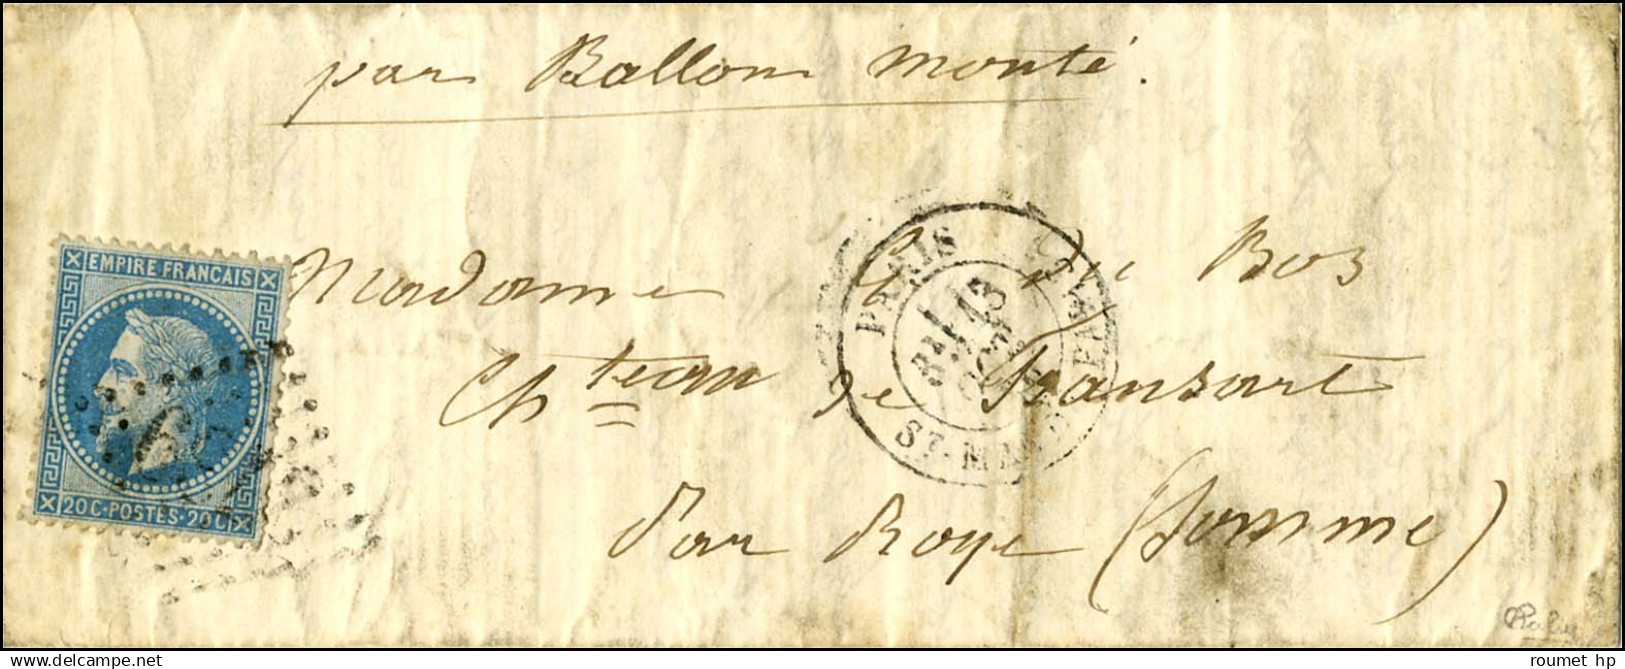 par Ballon monté.
EMPIRE FRANCAIS
20 C·POSTES·20 C
Madame du Bos
PARIS
13
OCT
ST-
Chteau de Fransart
Par Roye (Somme)
www.delcampe.net
roumet_hp